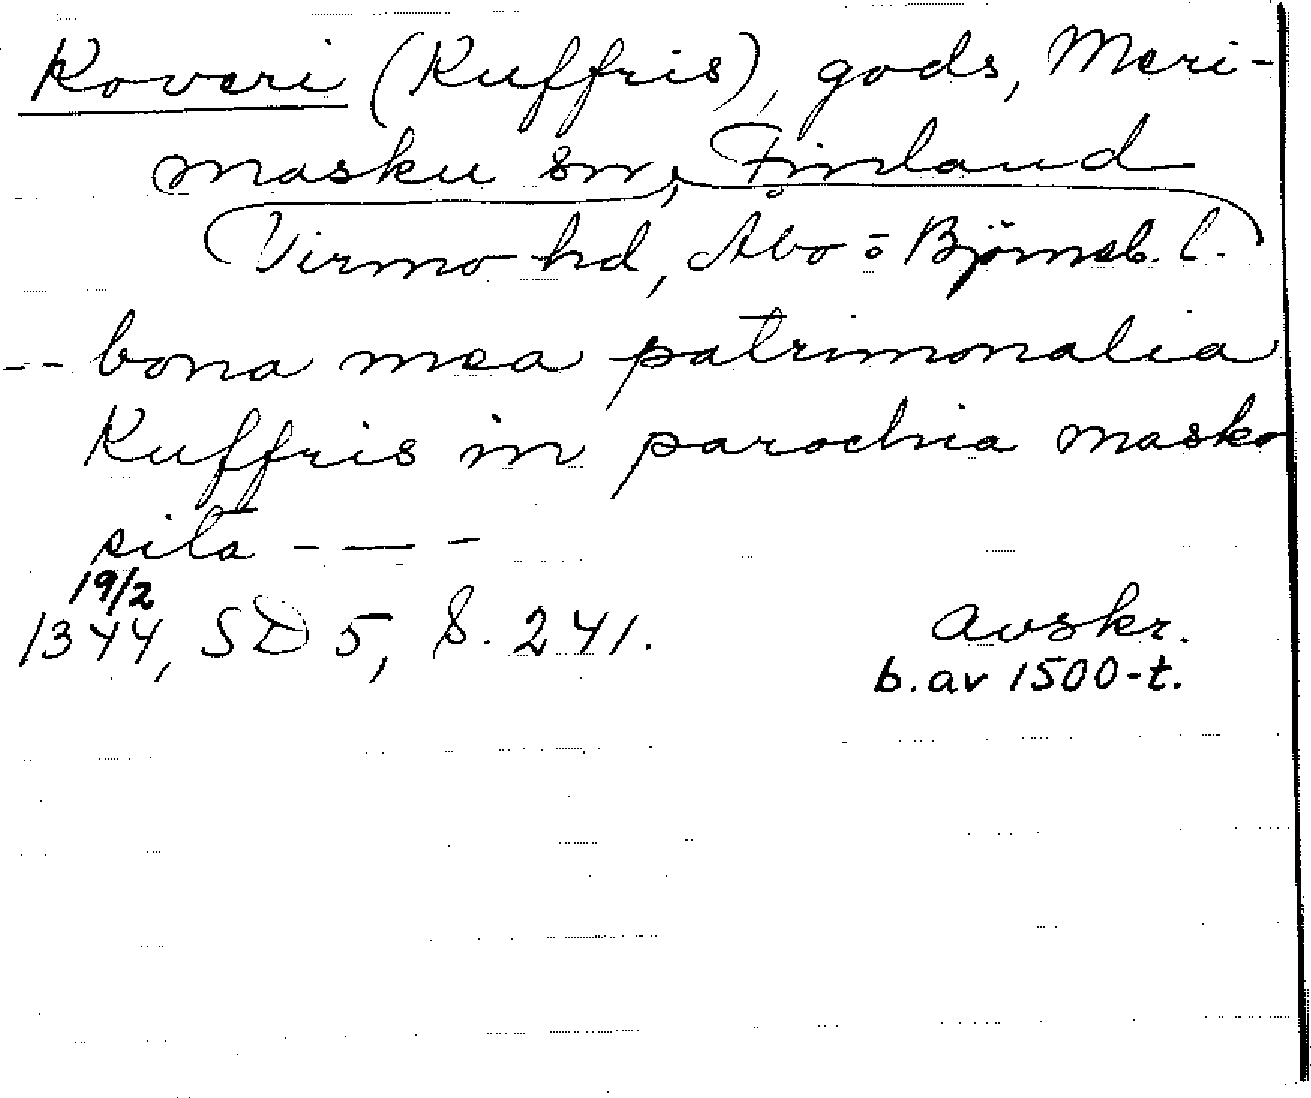 Koveri (Kuffris), gods, Meri-
masku sn, Finland
Virmo hd, Åbo o Björneb. l.
-- bona mea patrimonalia
Kuffris in parochia masko
sita - — -
19/2
1344, SD 5, S. 241. Avskr.
b. av 1500-t.